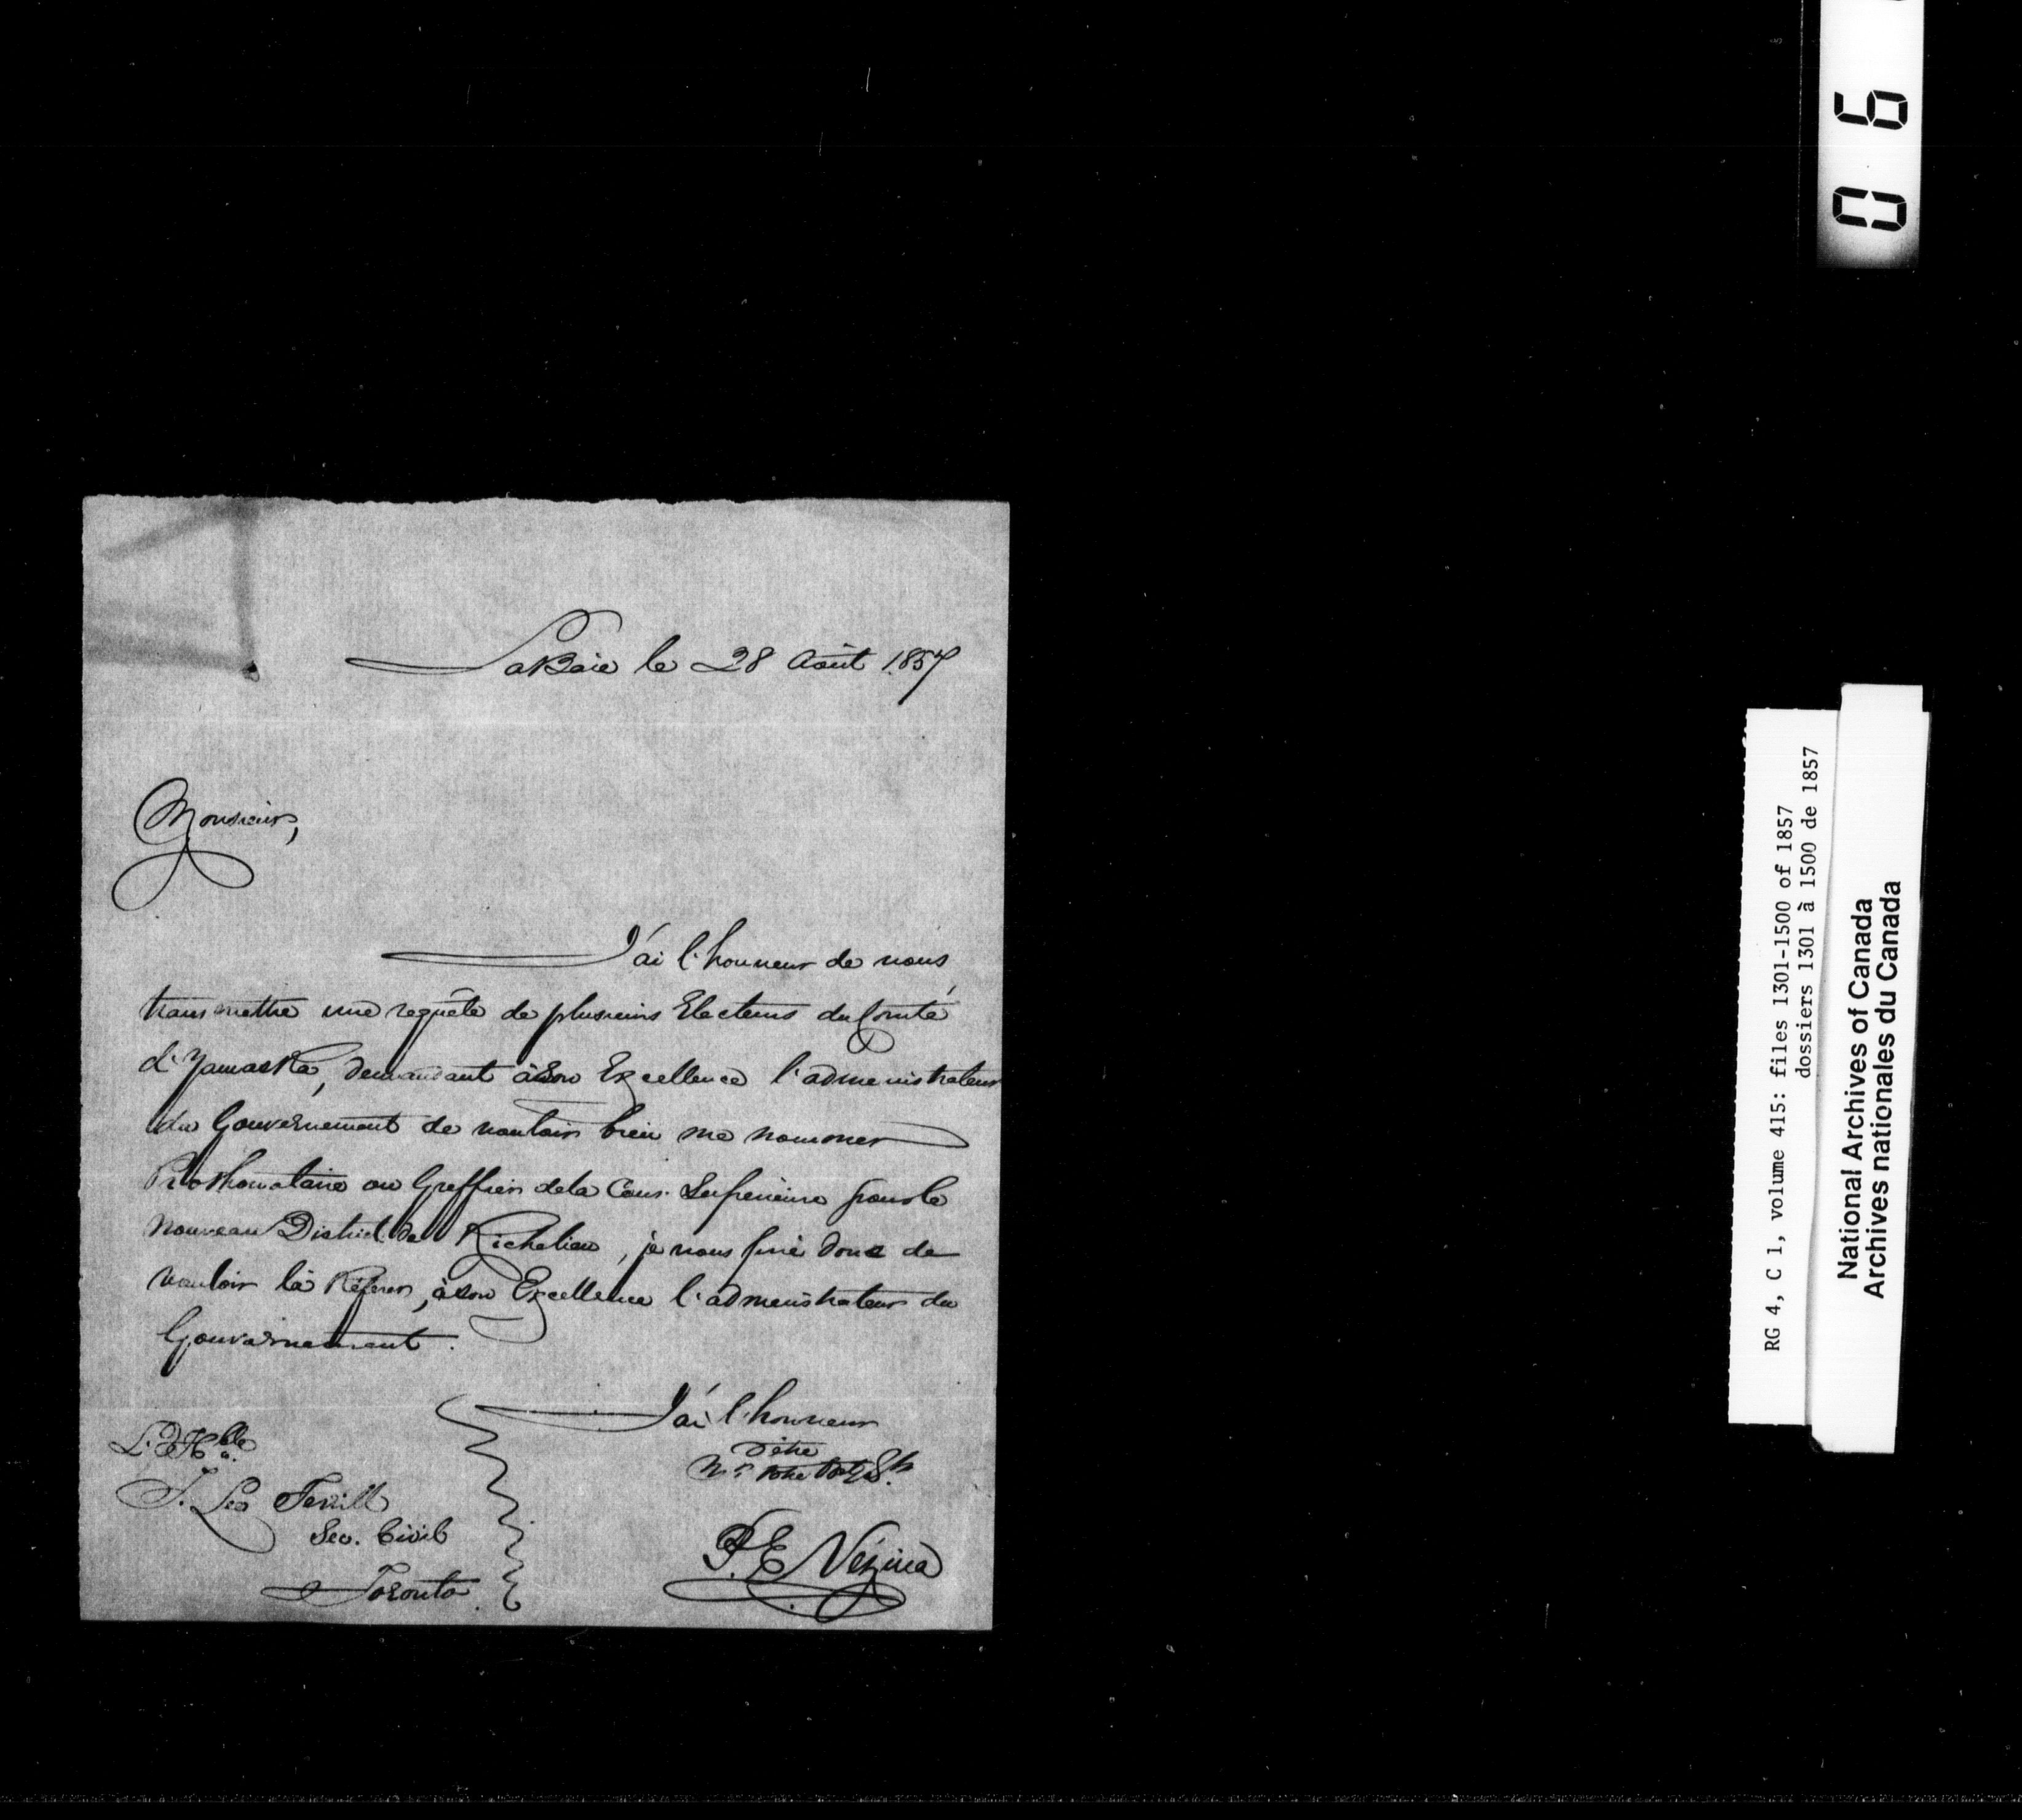 LaBaie le 28 Août 1857
Monsieur,
J'ai l'honneur de vous
transmettre une requête de plusieurs Electeurs du Comté
d'Yamaska, demandant à Son Excellence l'administrateur
du Gouvernement de vouloir bien me nommer
Prothonotaire ou Greffier de la Cour Superieure pour le
nouveau District de Richelieu, je vous prie donc de
vouloir la Réferer, à son Excellence l'admenistrateur du
Gouvernement.
J'ai l'honneur
d'être
Mr. votre
P. E. Vézina
L'Hble
T. Lee Terrill
Sec. Civil
Toronto.
0 6
RG 4, C 1, volume 415: files 1301-1500 of 1857
dossiers 1301 à 1500 de 1857
National Archives of Canada
Archives nationales du Canada